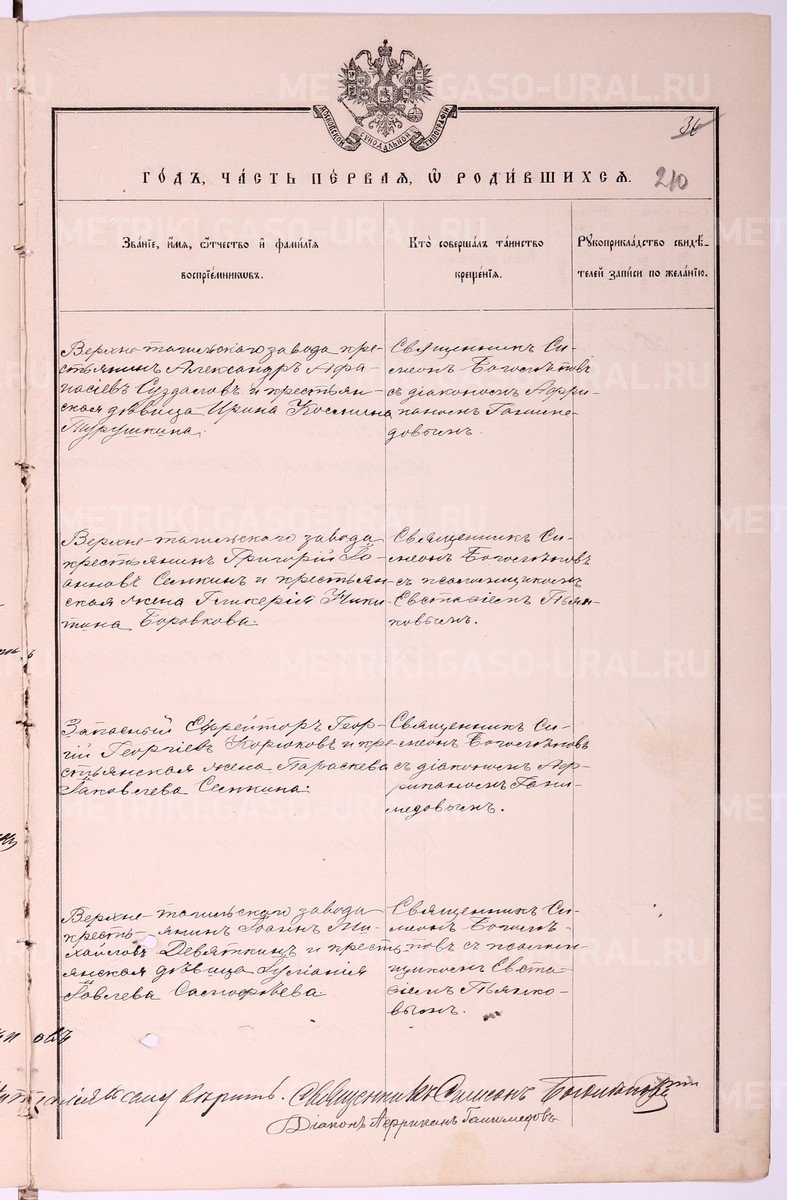 МОСКОВСКОЙ СѴНОДАЛЬНОЙ ТИПОГРАФІИ
36
ГОДЪ, ЧАСТЬ ПЕРВАЯ, Ѡ РОДИВШИХСЯ.
210
Званіе, имя, ѻтчество и фамилія
воспріемниковъ.
Кто совершалъ таинство
крещенія.
Рукоприкладство свидѣ-
телей записи по желанію.
Верхне-тагильскаго завода кре-
стьянинъ Александръ Афа-
насіевъ Суздаловъ и крестьян-
ская дѣвица Ирина Космина
Турушкина.
Священникъ Си-
меонъ Боголѣповъ
съ діакономъ Афри-
каномъ Ганиме-
довымъ.
Верхне-тагильскаго завода
крестьянинъ Григорій Іо-
анновъ Сепкинъ и крестьян-
ская жена Гликерія Ники-
тина Боровкова.
Священникъ Си-
меонъ Боголѣповъ
съ псаломщикомъ
Евстафіемъ Пьян-
ковымъ.
Запасный Ефрейторъ Геор-
гій Георгіевъ Корюковъ и кре-
стьянская жена Параскева
Іаковлева Сепкина.
Священникъ Си-
меонъ Боголѣповъ
съ діакономъ Аф-
риканомъ Гани-
медовымъ.
Верхне-тагильскаго завода
кресть-янинъ Іоаннъ Ми-
хайловъ Девяткинъ и кресть-
янская дѣвица Іуліанія
Іовлева Салофѣева
Священникъ Си-
меонъ Богол-
повъ съ псалом-
щикомъ Евста-
фіемъ Пьянко-
вымъ.
сему вѣрить. Священникъ Симеонъ Боголѣповъ
Діаконъ Африканъ Ганимедовъ
METRIKI.GASO-URAL.RU